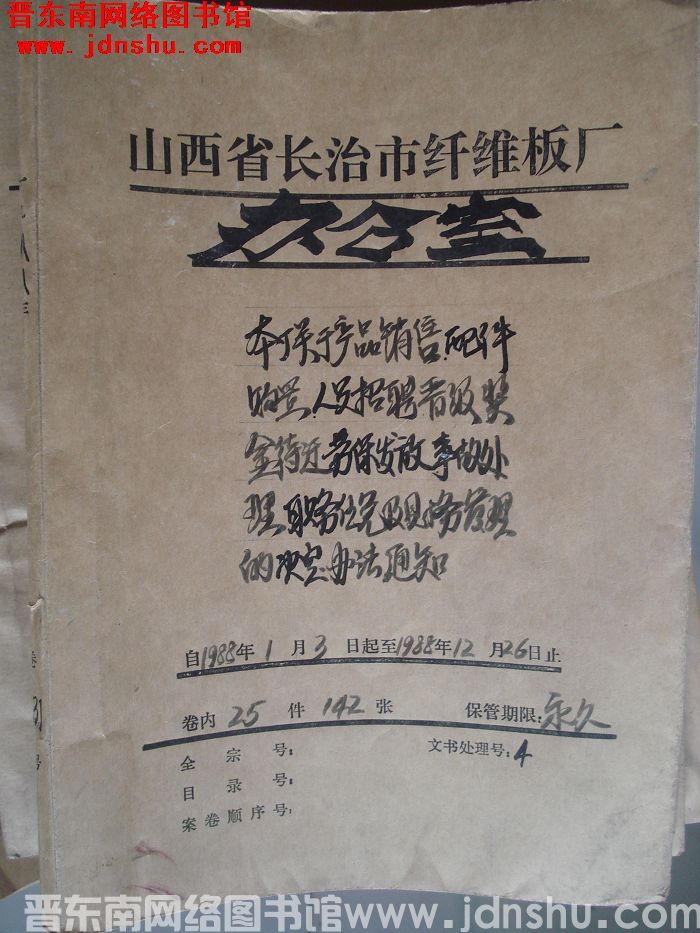 晋东南网络图书馆
www.jdnshu.com
山西省长治市纤维板厂
办公室
本厂关于产品销售、配件
购置、人员招聘晋级奖
金待近劳保发放事故处
理、职务任免及财务管理
的决定办法通知
自1988年1月3日起至1988年12月26日止
卷内25件142张 保管期限:永久
全宗号: 文书处理号:4
目录号:
案卷顺序号:
卷
31
号
晋东南网络图书馆www.jdnshu.com